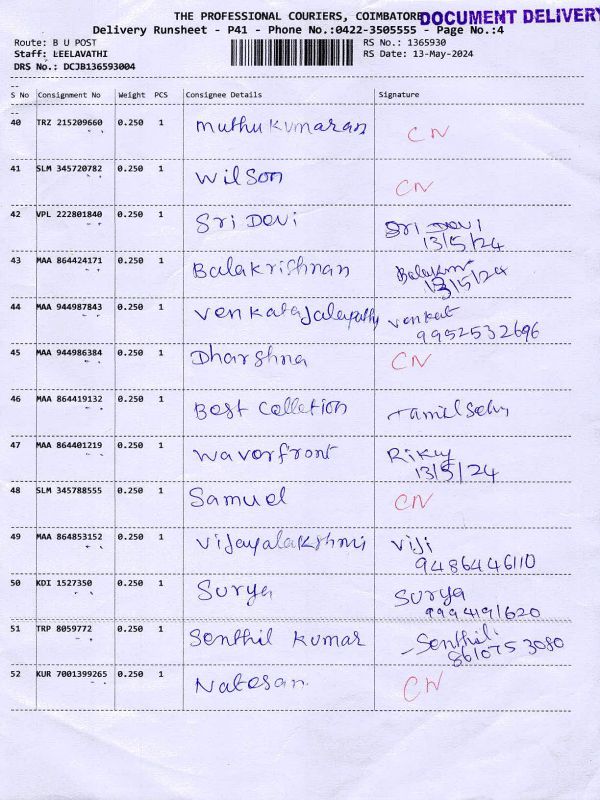 THE PROFESSIONAL COURIERS, COIMBATORE
DOCUMENT DELIVERY
Delivery Runsheet - P41 - Phone No.:0422-3505555 - Page No.:4
Route: B U POST RS No.: 1365930
Staff: LEELAVATHI RS Date: 13-May-2024
DRS No.: DCJB136593004
S No Consignment No Weight PCS Consignee Details Signature
40 TRZ 215209660 0.250 1 Muthukumaran CN
41 SLM 345720782 0.250 1 Wilson CN
42 VPL 222801840 0.250 1 Sri Devi Sri Devi
13/5/24
43 MAA 864424171 0.250 1 Balakrishnan
13/5/24
44 MAA 944987843 0.250 1 Venkatajalapathy Venkat
9952532696
45 MAA 944986384 0.250 1 Dharshna CN
46 MAA 864419132 0.250 1 Best Colletion
47 MAA 864401219 0.250 1 Wavorfront Riky
13/5/24
48 SLM 345788555 0.250 1 Samuel CN
49 MAA 864853152 0.250 1 Vijayalakshmi Viji
9486446110
50 KDI 1527350 0.250 1 Surya Surya
51 TRP 8059772 0.250 1 Senthil Kumar Senthil
861075 3080
52 KUR 7001399265 0.250 1 Natesan CN